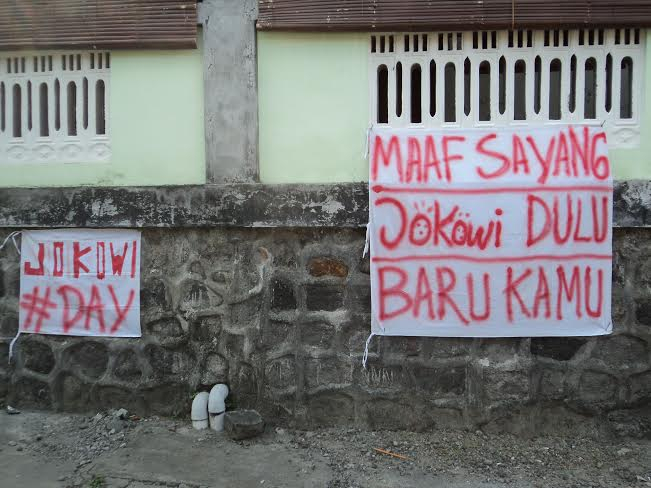 JOKOWI
#DAY
MAAF SAYANG
JÖKÖWi DULU
BARU KAMU